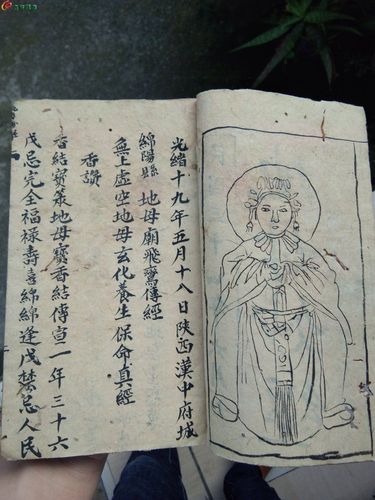 光緒十九年五月十八日陝西漢中府城
綿陽縣 地母廟飛鸞傳經
無上虛空地母玄化養生保命真經
香讚
香結寶篆地母靈香結傳宣一年三十六
戊忌完全福祿壽喜綿綿逢戊禁忌人民